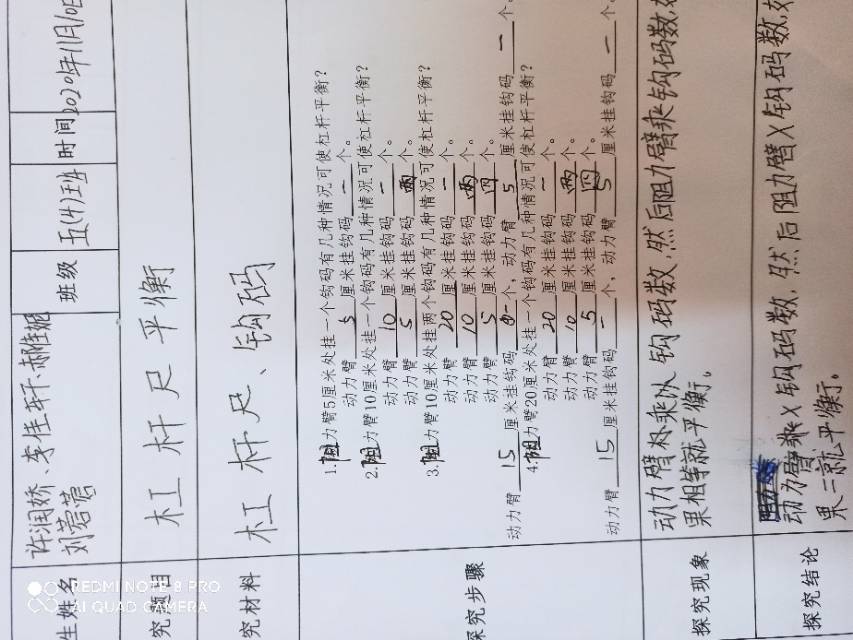 生姓名 许润娇、李佳轩、郝佳妮 刘荟萱 班级 五(4)班 时间 2020年11月10日
究题目 杠杆尺平衡
究材料 杠杆尺、钩码
探究步骤
1.阻力臂5厘米处挂一个钩码有几种情况可使杠杆平衡?
动力臂 5 厘米挂钩码 一 个。
2.阻力臂10厘米处挂一个钩码有几种情况可使杠杆平衡?
动力臂 10 厘米挂钩码 一 个。
动力臂 5 厘米挂钩码 两 个。
3.阻力臂10厘米处挂两个钩码有几种情况可使杠杆平衡?
动力臂 20 厘米挂钩码 一 个。
动力臂 10 厘米挂钩码 两 个。
动力臂 5 厘米挂钩码 四 个。
动力臂 15 厘米挂钩码 一 个,动力臂 5 厘米挂钩码 一 个。
4.阻力臂20厘米处挂一个钩码有几种情况可使杠杆平衡?
动力臂 20 厘米挂钩码 一 个。
动力臂 10 厘米挂钩码 两 个。
动力臂 5 厘米挂钩码 四 个。
动力臂 15 厘米挂钩码 一 个,动力臂 5 厘米挂钩码 一 个。
探究现象
动力臂乘以钩码数,然后阻力臂乘钩码数,
果相等就平衡。
探究结论
动力臂乘×钩码数,然后阻力臂×钩码数,
果二就平衡。
REDMI NOTE 8 PRO
AI QUAD CAMERA